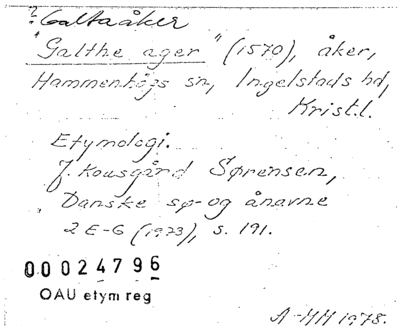 ? Galtaåker
"Galthe ager" (1570), åker,
Hammenhögs sn, Ingelstads hd,
Krist.l.
Etymologi.
J. Kousgård Sørensen,
Danske sø- og ånavne
2 E-G (1973), s. 191.
00024796
OAU etym reg
A-MH 1978.